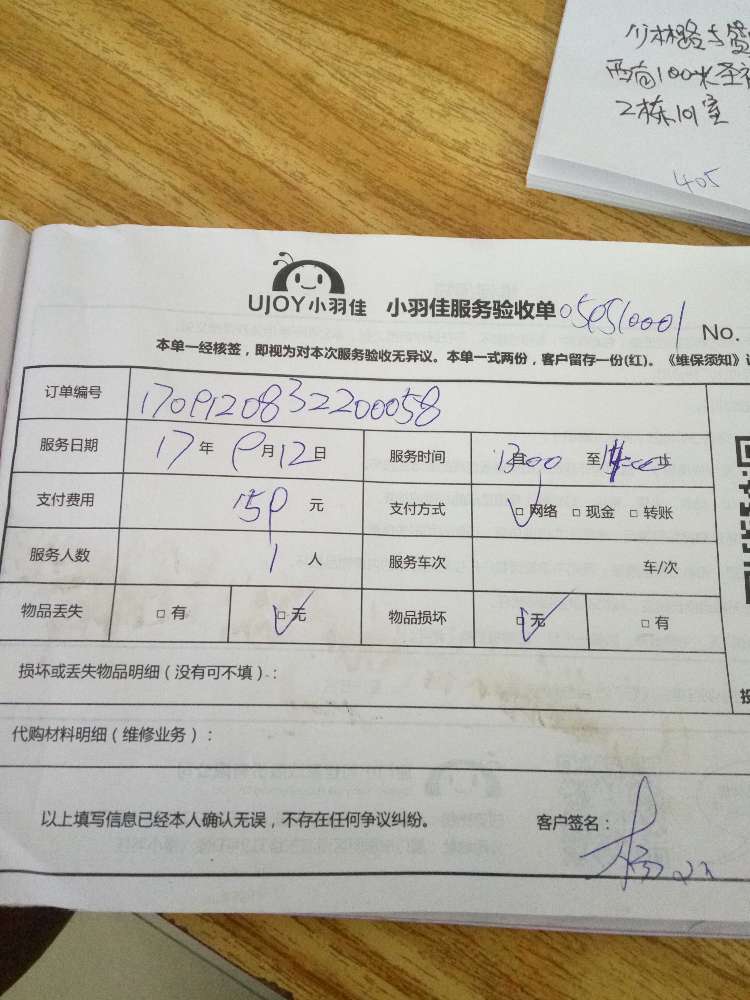 西南100米圣
2栋101室
405
UJOY小羽佳 小羽佳服务验收单 050510001 No.
本单一经核签，即视为对本次服务验收无异议。本单一式两份，客户留存一份(红)。《维保须知》
订单编号 1709120832200058
服务日期 17年9月12日 服务时间 13:00 至 止
支付费用 159 元 支付方式 ☑网络 □现金 □转账
服务人数 1 人 服务车次 车/次
物品丢失 □有 ☑无 物品损坏 ☑无 □有
损坏或丢失物品明细（没有可不填）:
代购材料明细（维修业务）:
以上填写信息已经本人确认无误，不存在任何争议纠纷。 客户签名：